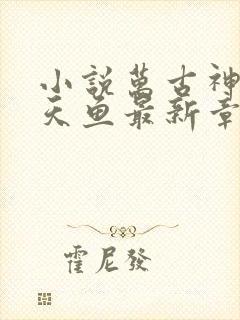 小說萬古神
天魚最新章
霍尼發